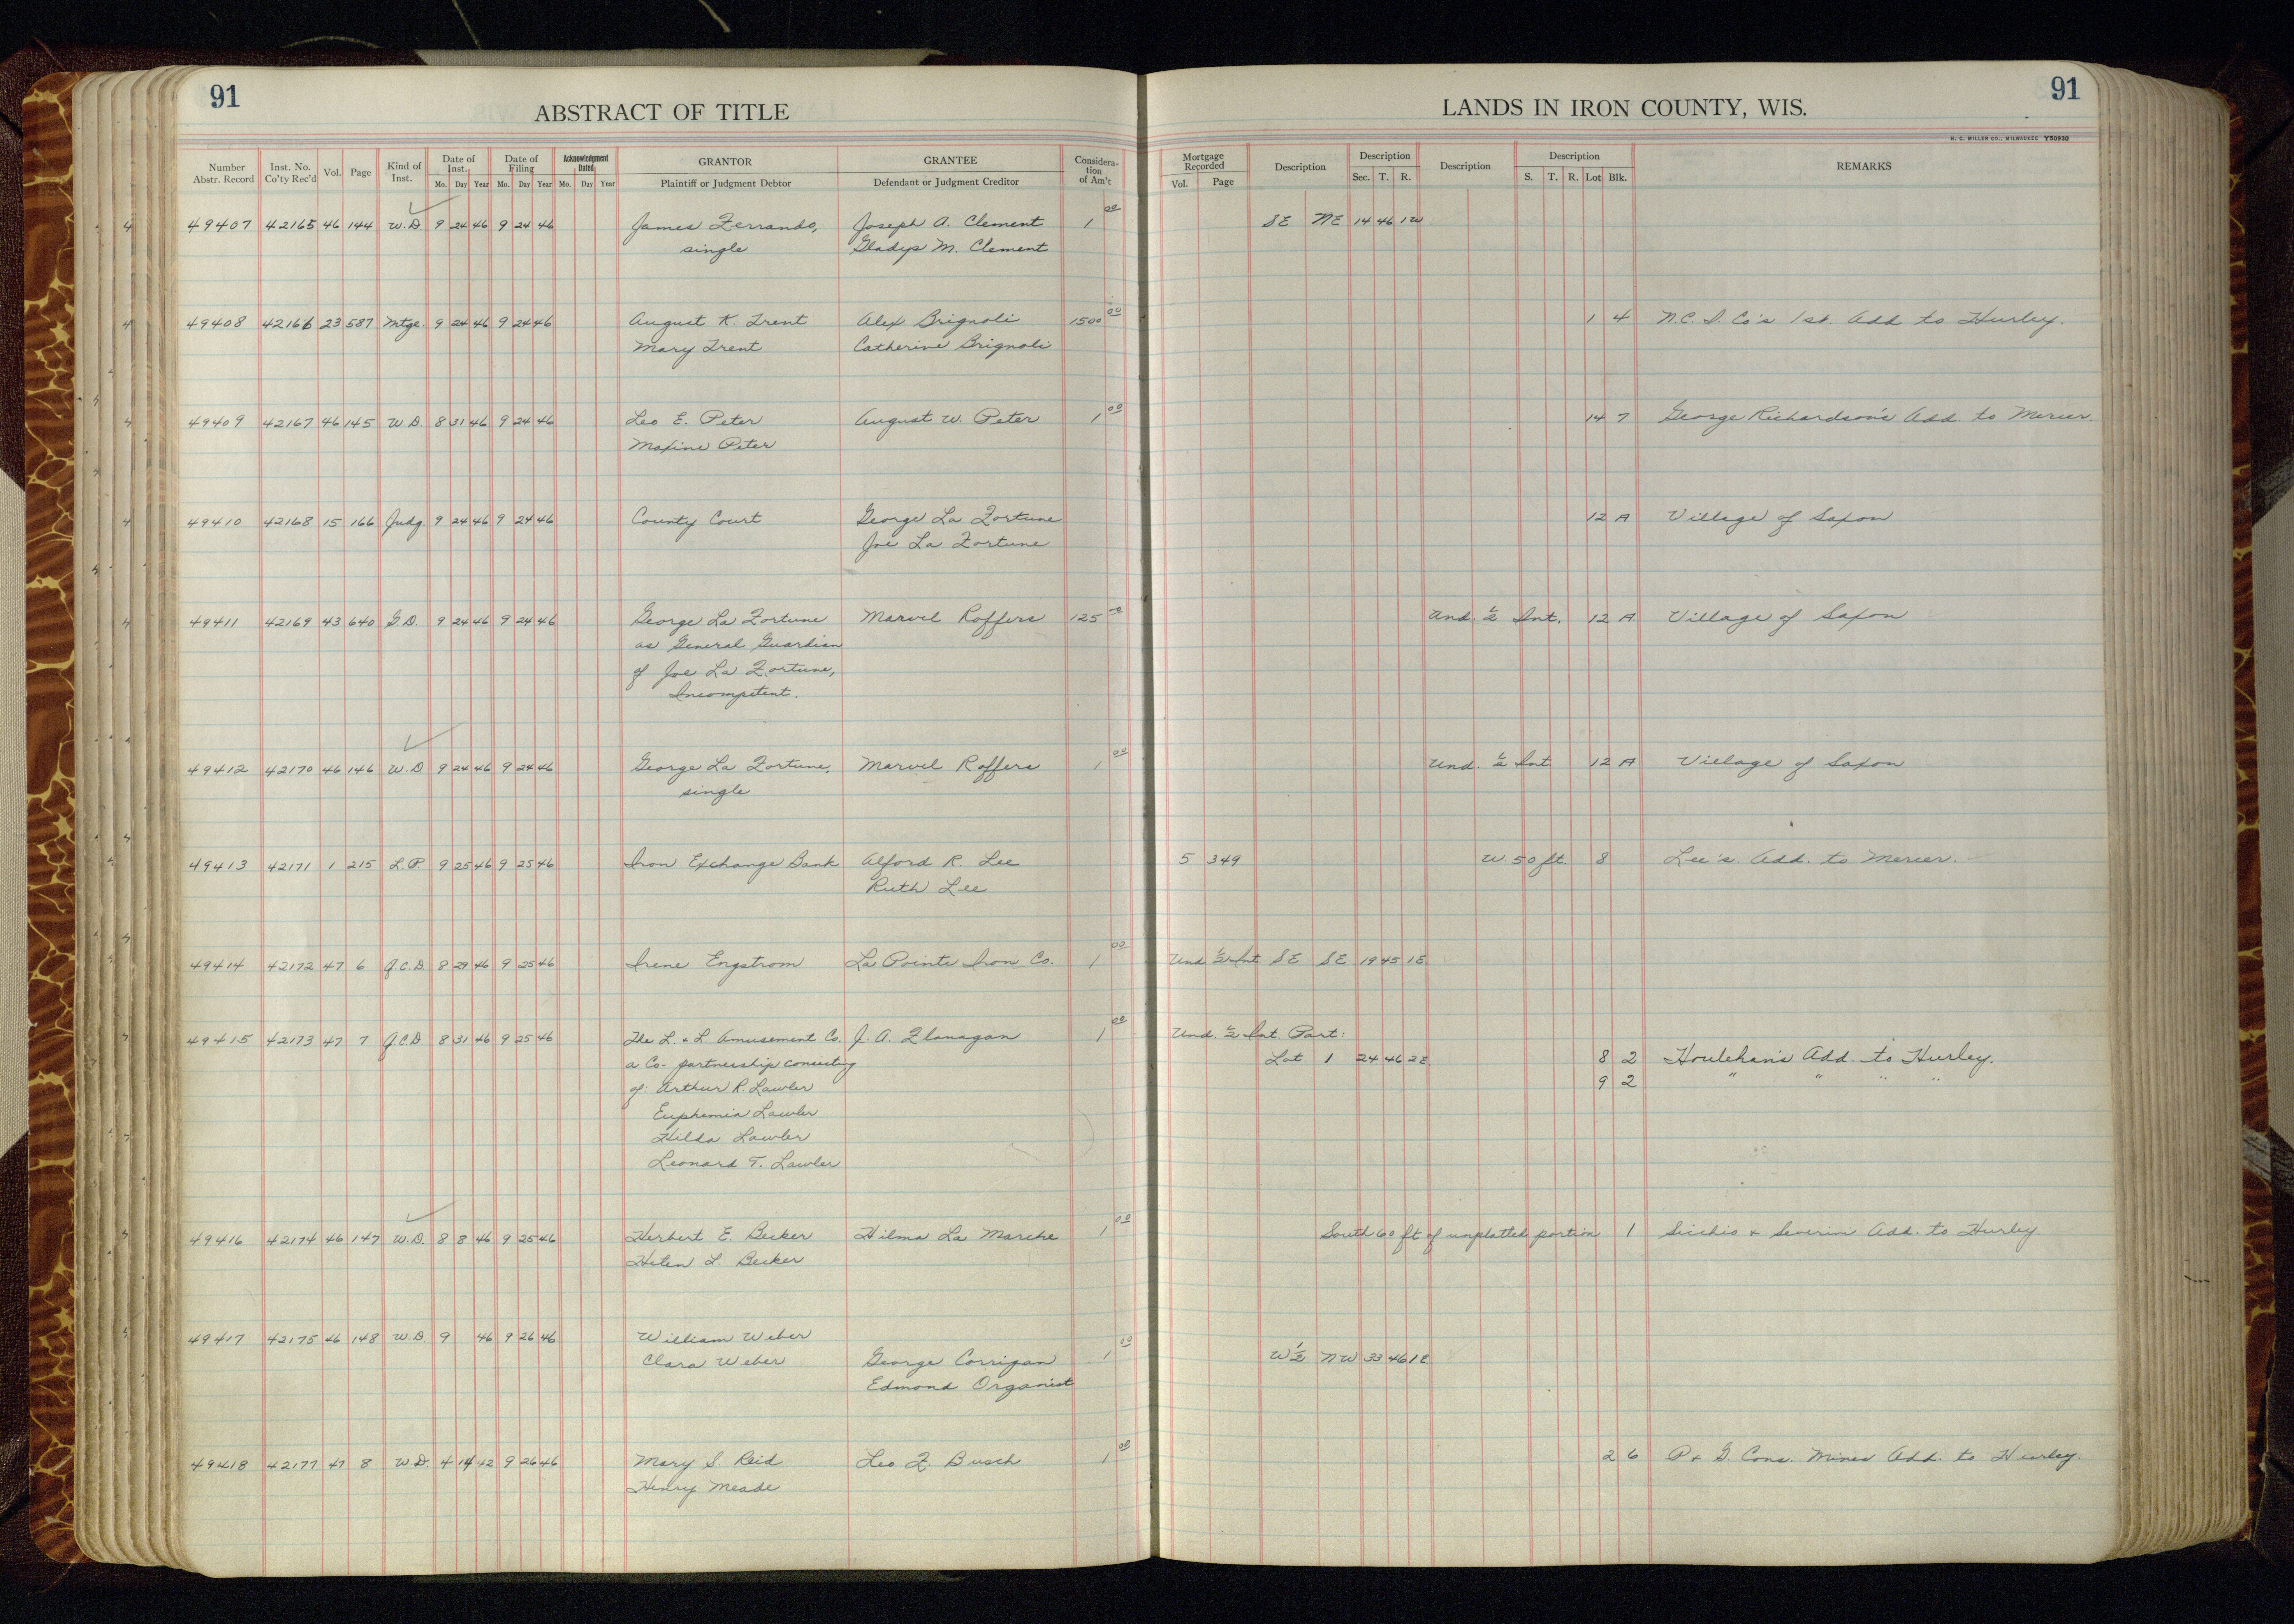 91
ABSTRACT OF TITLE
LANDS IN IRON COUNTY, WIS.
91
H. C. MILLER CO., MILWAUKEE Y50930
Number Abstr. Record Inst. No. Co'ty Rec'd Vol. Page Kind of Inst. Date of Inst. Mo. Day Year Date of Filing Mo. Day Year Acknowledgment Dated Mo. Day Year GRANTOR Plaintiff or Judgment Debtor GRANTEE Defendant or Judgment Creditor Considera-tion of Am't Mortgage Recorded Vol. Page Description Description Sec. T. R. Description Description S. T. R. Lot Blk. REMARKS
49407 42165 46 144 W.D. 9 24 46 9 24 46 James Ferrando, Joseph A. Clement 1 00 SE NE 14 46 1W
single Gladys M. Clement
49408 42166 23 587 Mtge. 9 24 46 9 24 46 August K. Trent Alex Brignoli 1500 00 1 4 N.C. I. Co's 1st. Add to Hurley.
Mary Trent Catherine Brignoli
49409 42167 46 145 W.D. 8 31 46 9 24 46 Leo E. Peter August W. Peter 1 00 14 7 George Richardson's Add. to Mercer.
Maxine Peter
49410 42168 15 166 Judg. 9 24 46 9 24 46 County Court George La Fortune 12 A Village of Saxon
Joe La Fortune
49411 42169 43 640 G.D. 9 24 46 9 24 46 George La Fortune Marvel Roffers 125 00 Und. 1/2 Int. 12 A Village of Saxon
as General Guardian
of Joe La Fortune,
Incompetent.
49412 42170 46 146 W.D 9 24 46 9 24 46 George La Fortune, Marvel Roffers 1 00 Und. 1/2 Int 12 A Village of Saxon
single
49413 42171 1 215 L.P. 9 25 46 9 25 46 Iron Exchange Bank Alford R. Lee 5 349 W. 50 ft. 8 Lee's. Add. to Mercer.
Ruth Lee
49414 42172 47 6 Q.C.D 8 29 46 9 25 46 Irene Engstrom La Pointe Iron Co. 1 00 Und 1/2 Int SE SE 19 45 1E
49415 42173 47 7 Q.C.D 8 31 46 9 25 46 The L. & L. Amusement Co. J. A. Flanagan 1 00 Und. 1/2 Int. Part:
a Co-partnership consisting Lot 1 24 46 2E 8 2 Houlehan's Add. to Hurley.
of: Arthur R. Lawler 9 2 " " " "
Euphemia Lawler
Hilda Lawler
Leonard T. Lawler
49416 42174 46 147 W.D. 8 8 46 9 25 46 Herbert E. Becker Hilma La Marche 1 00 South 60 ft of unplatted portion 1 Sicchio & Severin Add. to Hurley.
Helen L. Becker
49417 42175 46 148 W.D 9 46 9 26 46 William Weber
Clara Weber George Corrigan 1 00 W 1/2 NW 33 46 1E
Edmond Organist
49418 42177 47 8 W.D. 4 14 42 9 26 46 Mary S Reid Leo F. Busch 1 00 2 6 P & G. Cons. Mines Add. to Hurley.
Henry Meade